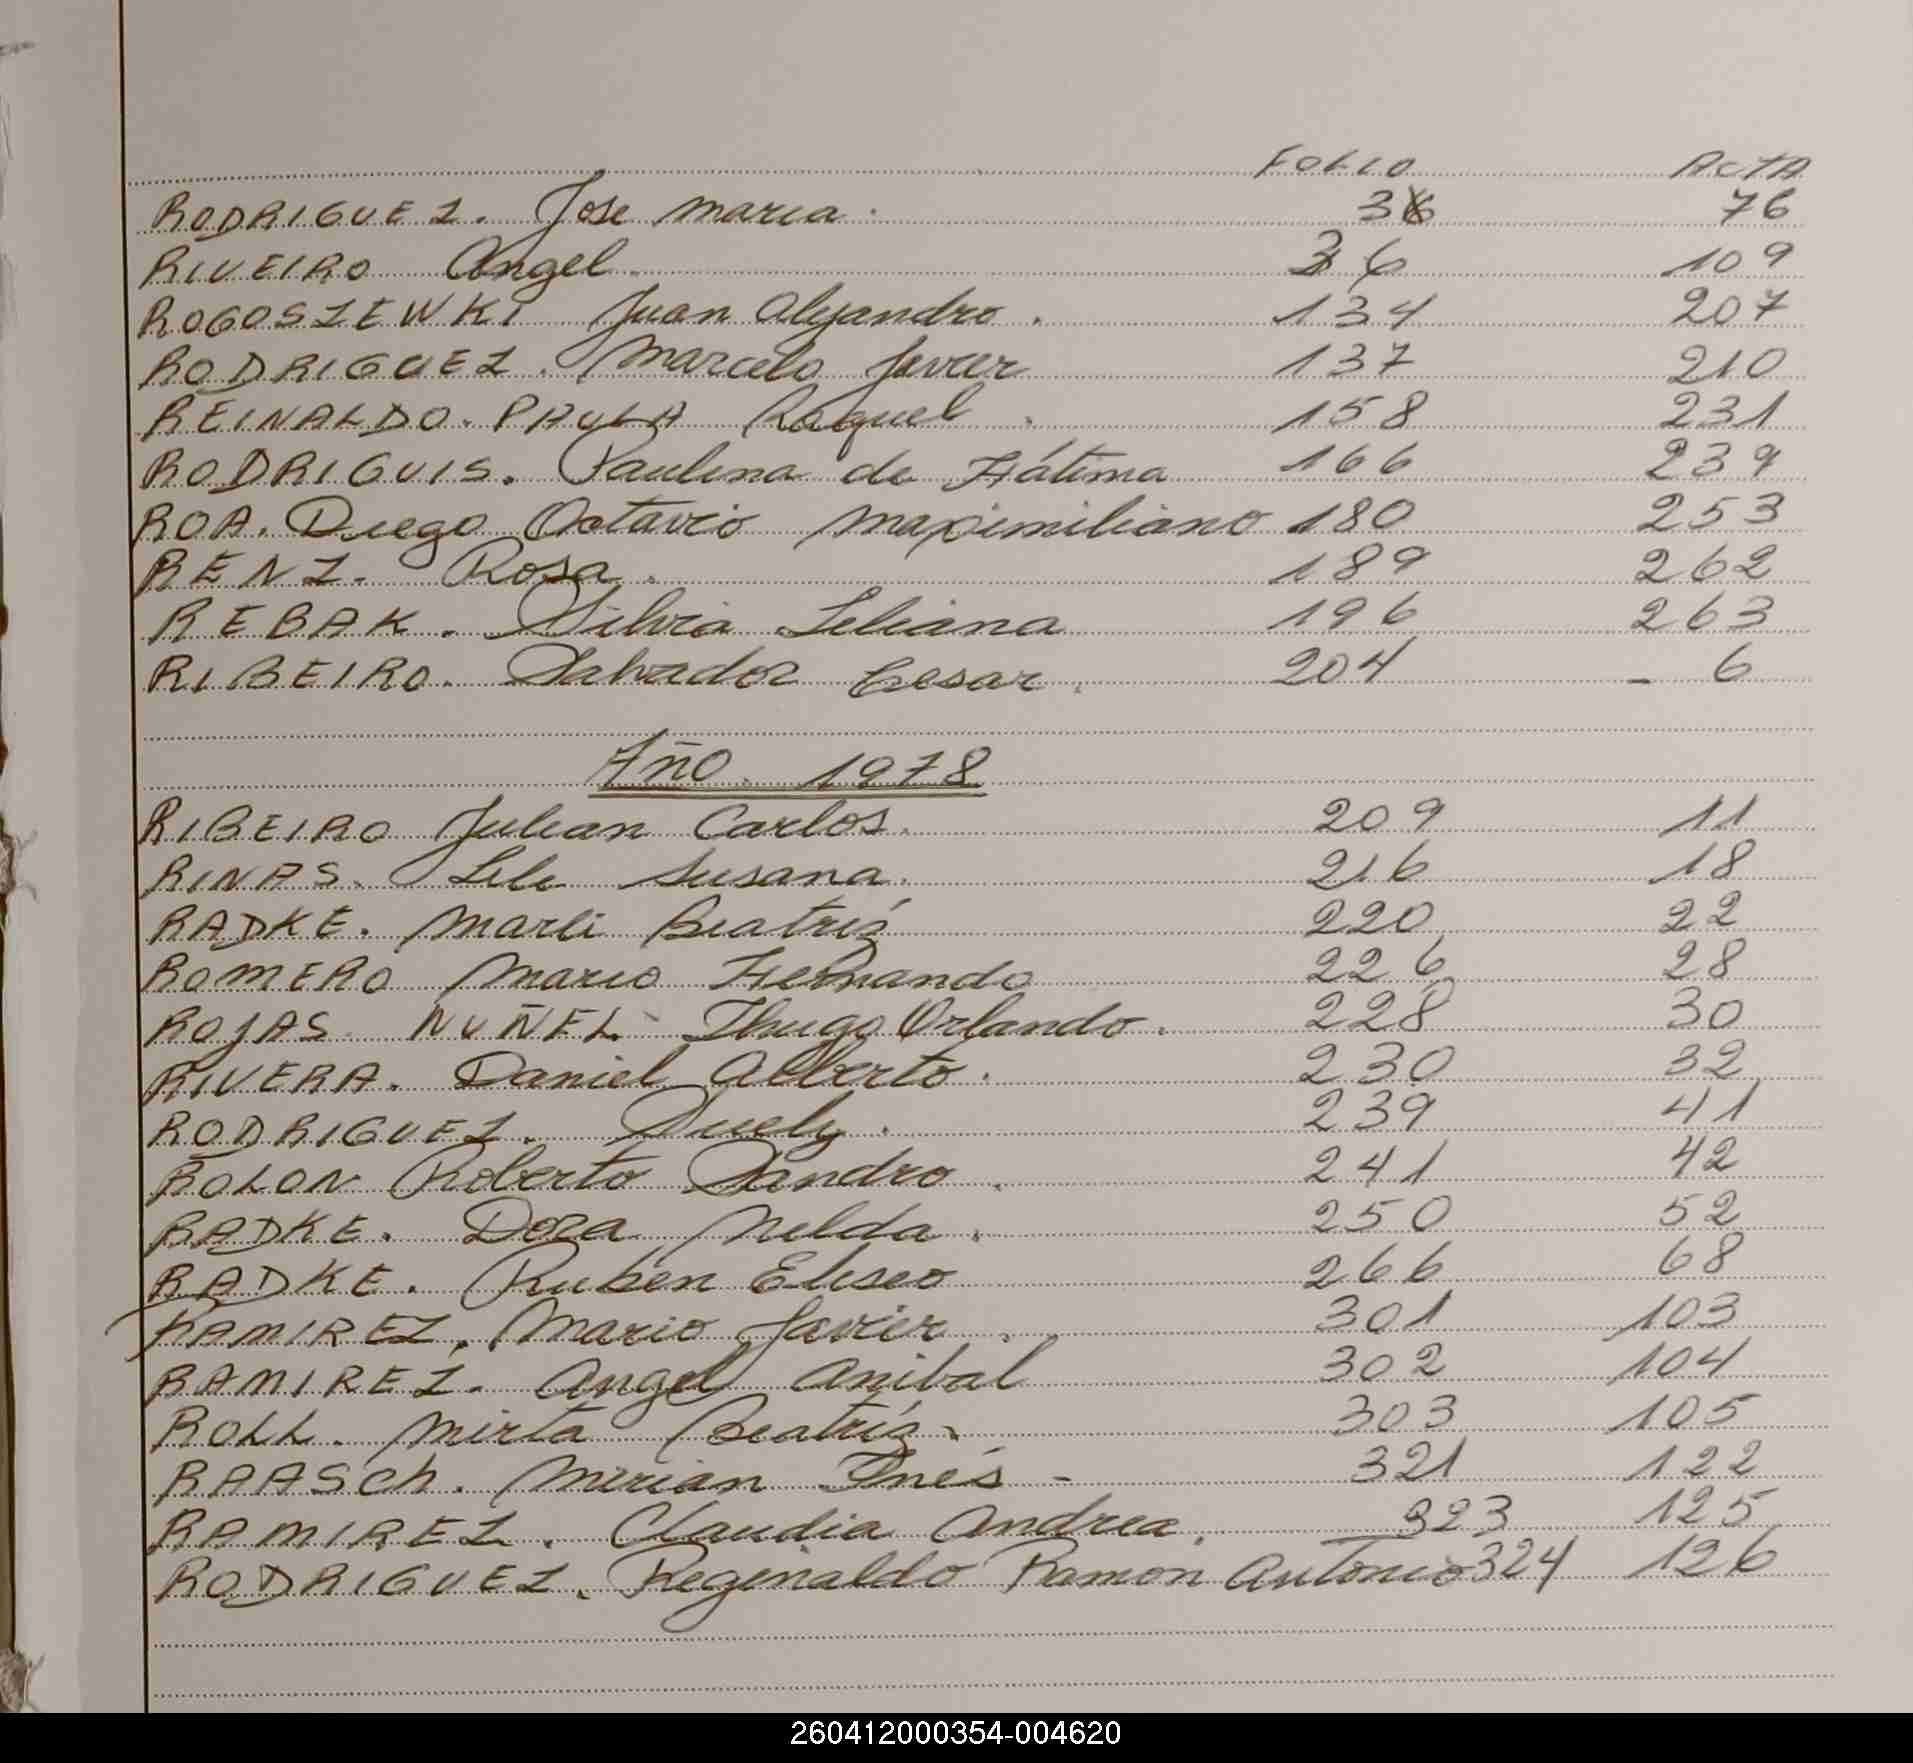 FOLIO ACTA
RODRIGUEZ. Jose Maria. 3 76
RIVEIRO Angel 36 109
ROGOSZEWKI Juan Alejandro. 134 207
RODRIGUEZ. Marcelo Javier 137 210
REINALDO. PAULA Raquel. 158 231
RODRIGUIS. Paulina de Fátima 166 239
ROA. Diego Octavio Maximiliano 180 253
RENZ. Rosa. 189 262
REBAK. Silvia Liliana 196 263
RIBEIRO. Salvador Cesar. 204 - 6
Año. 1978
RIBEIRO Julian Carlos. 209 11
RINAS. Lili Susana. 216 18
RADKE. Marli Beatríz 220 22
ROMERO Mario Fernando 226 28
ROJAS. NUÑEZ Thugo Orlando. 228 30
RIVERA. Daniel Alberto. 230 32
RODRIGUEZ. Suely. 239 41
ROLON Roberto Sandro. 241 42
RADKE. Dora Nelda. 250 52
RADKE. Ruben Eliseo 266 68
RAMIREZ. Mario Javier. 301 103
RAMIREZ. Angel Anibal 302 104
ROLL. Mirta Beatríz. 303 105
RAASCh. Mirian Inés - 321 122
RAMIREZ. Claudia Andrea. 323 125
RODRIGUEZ. Reginaldo Ramon Antonio 324 126
260412000354-004620